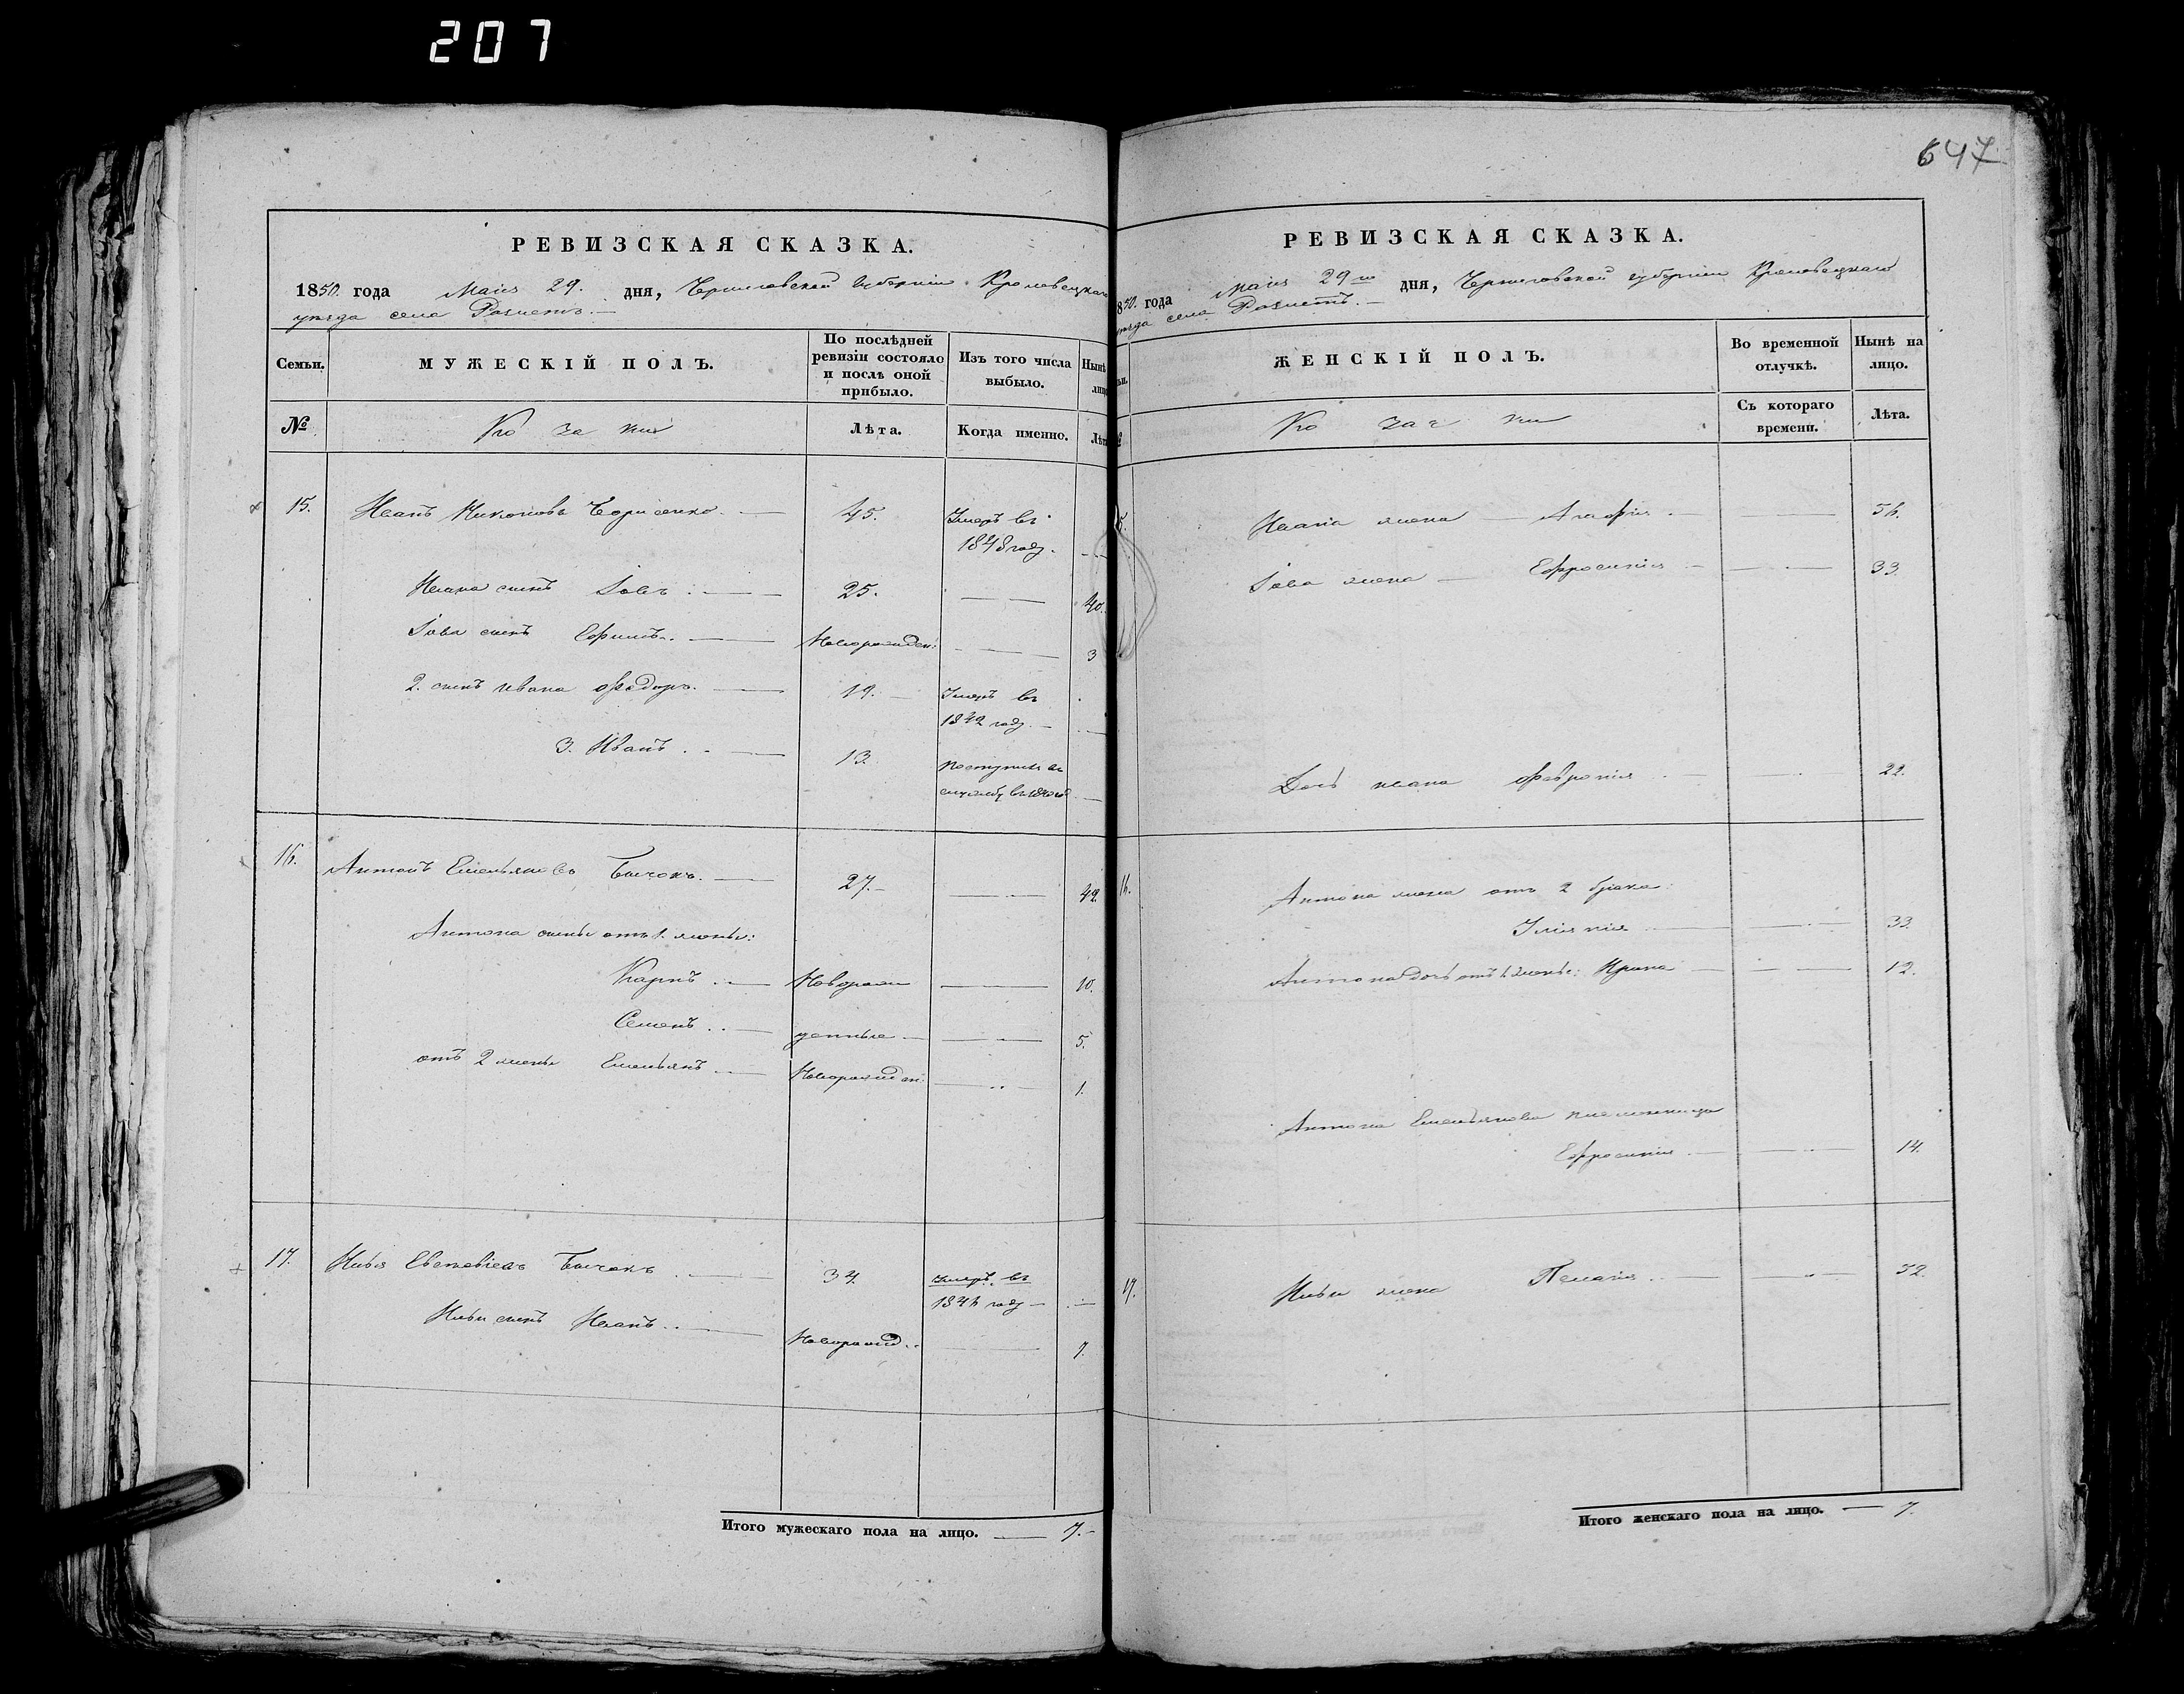 207
647
РЕВИЗСКАЯ СКАЗКА.
1850. года Маія 29. дня, Черниговской губерніи Кролевецкаго
уезда села Разлеты.
Семьи. МУЖЕСКІЙ ПОЛЪ. По послѣдней ревизіи состояло и послѣ оной прибыло. Изъ того числа выбыло. Нынѣ лицо
№ Ко за ки Лѣта. Когда именно. Лѣт
15. Иванъ Никоновъ Борисенко. 45. Умеръ въ
1848 году.
Ивана сынъ Іовъ 25. 40.
Іова сынъ Ефимъ. Новорожден: 3
2. сынъ Ивана Федоръ. 19. Умеръ въ
1842 году.
3. Иванъ. 13 поступилъ въ
службу въ
16. Антонъ Емельяновъ Бычокъ. 27. 42
Антона сыны отъ 1. жены:
Карпъ Новорож 10.
Семенъ денные 5.
отъ 2 жены Емельянъ Новорожден: 1.
17. Евсевіевъ Бычокъ 34 умеръ въ
1844 году
сынъ Иванъ Новорожд.. 7.
Итого мужескаго пола на лицо. 7.
РЕВИЗСКАЯ СКАЗКА.
850. года Маія 29го дня, Черниговской губерніи Кролевецкаго
уезда села Разлеты.
ьи. ЖЕНСКІЙ ПОЛЪ. Во временной отлучкѣ. Нынѣ на лицо.
Ко зач ки Съ котораго времени. Лѣта.
5. Ивана жена Агафія 56.
Іова жена Ефросинія 33.
Дочь Ивана Февронія 22.
16. Антона жена отъ 2 брака:
Уліянія 33.
Антона дочь отъ 1. жены: Ирина 12.
Антона Емельянова племенница
Ефросинія 14.
17. жена Пелагія 32.
Итого женскаго пола на лицо. 7.